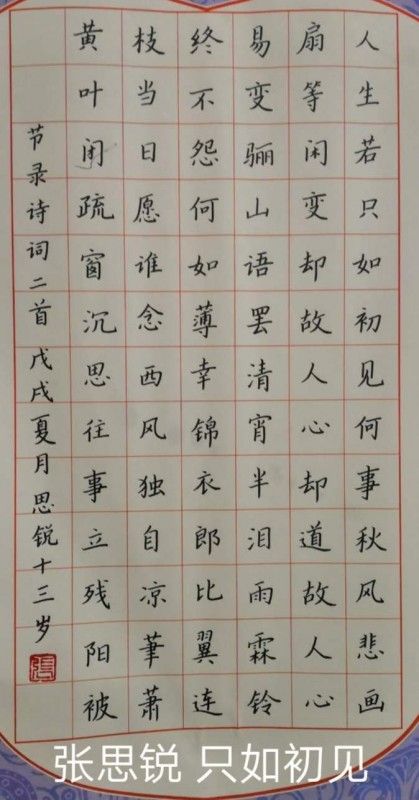 人生若只如初见何事秋风悲画
扇等闲变却故人心却道故人心
易变骊山语罢清宵半泪雨霖铃
终不怨何如薄幸锦衣郎比翼连
枝当日愿谁念西风独自凉萧萧
黄叶闭疏窗沉思往事立残阳被
节录诗词二首戊戌夏月思锐十三岁
張
张思锐 只如初见